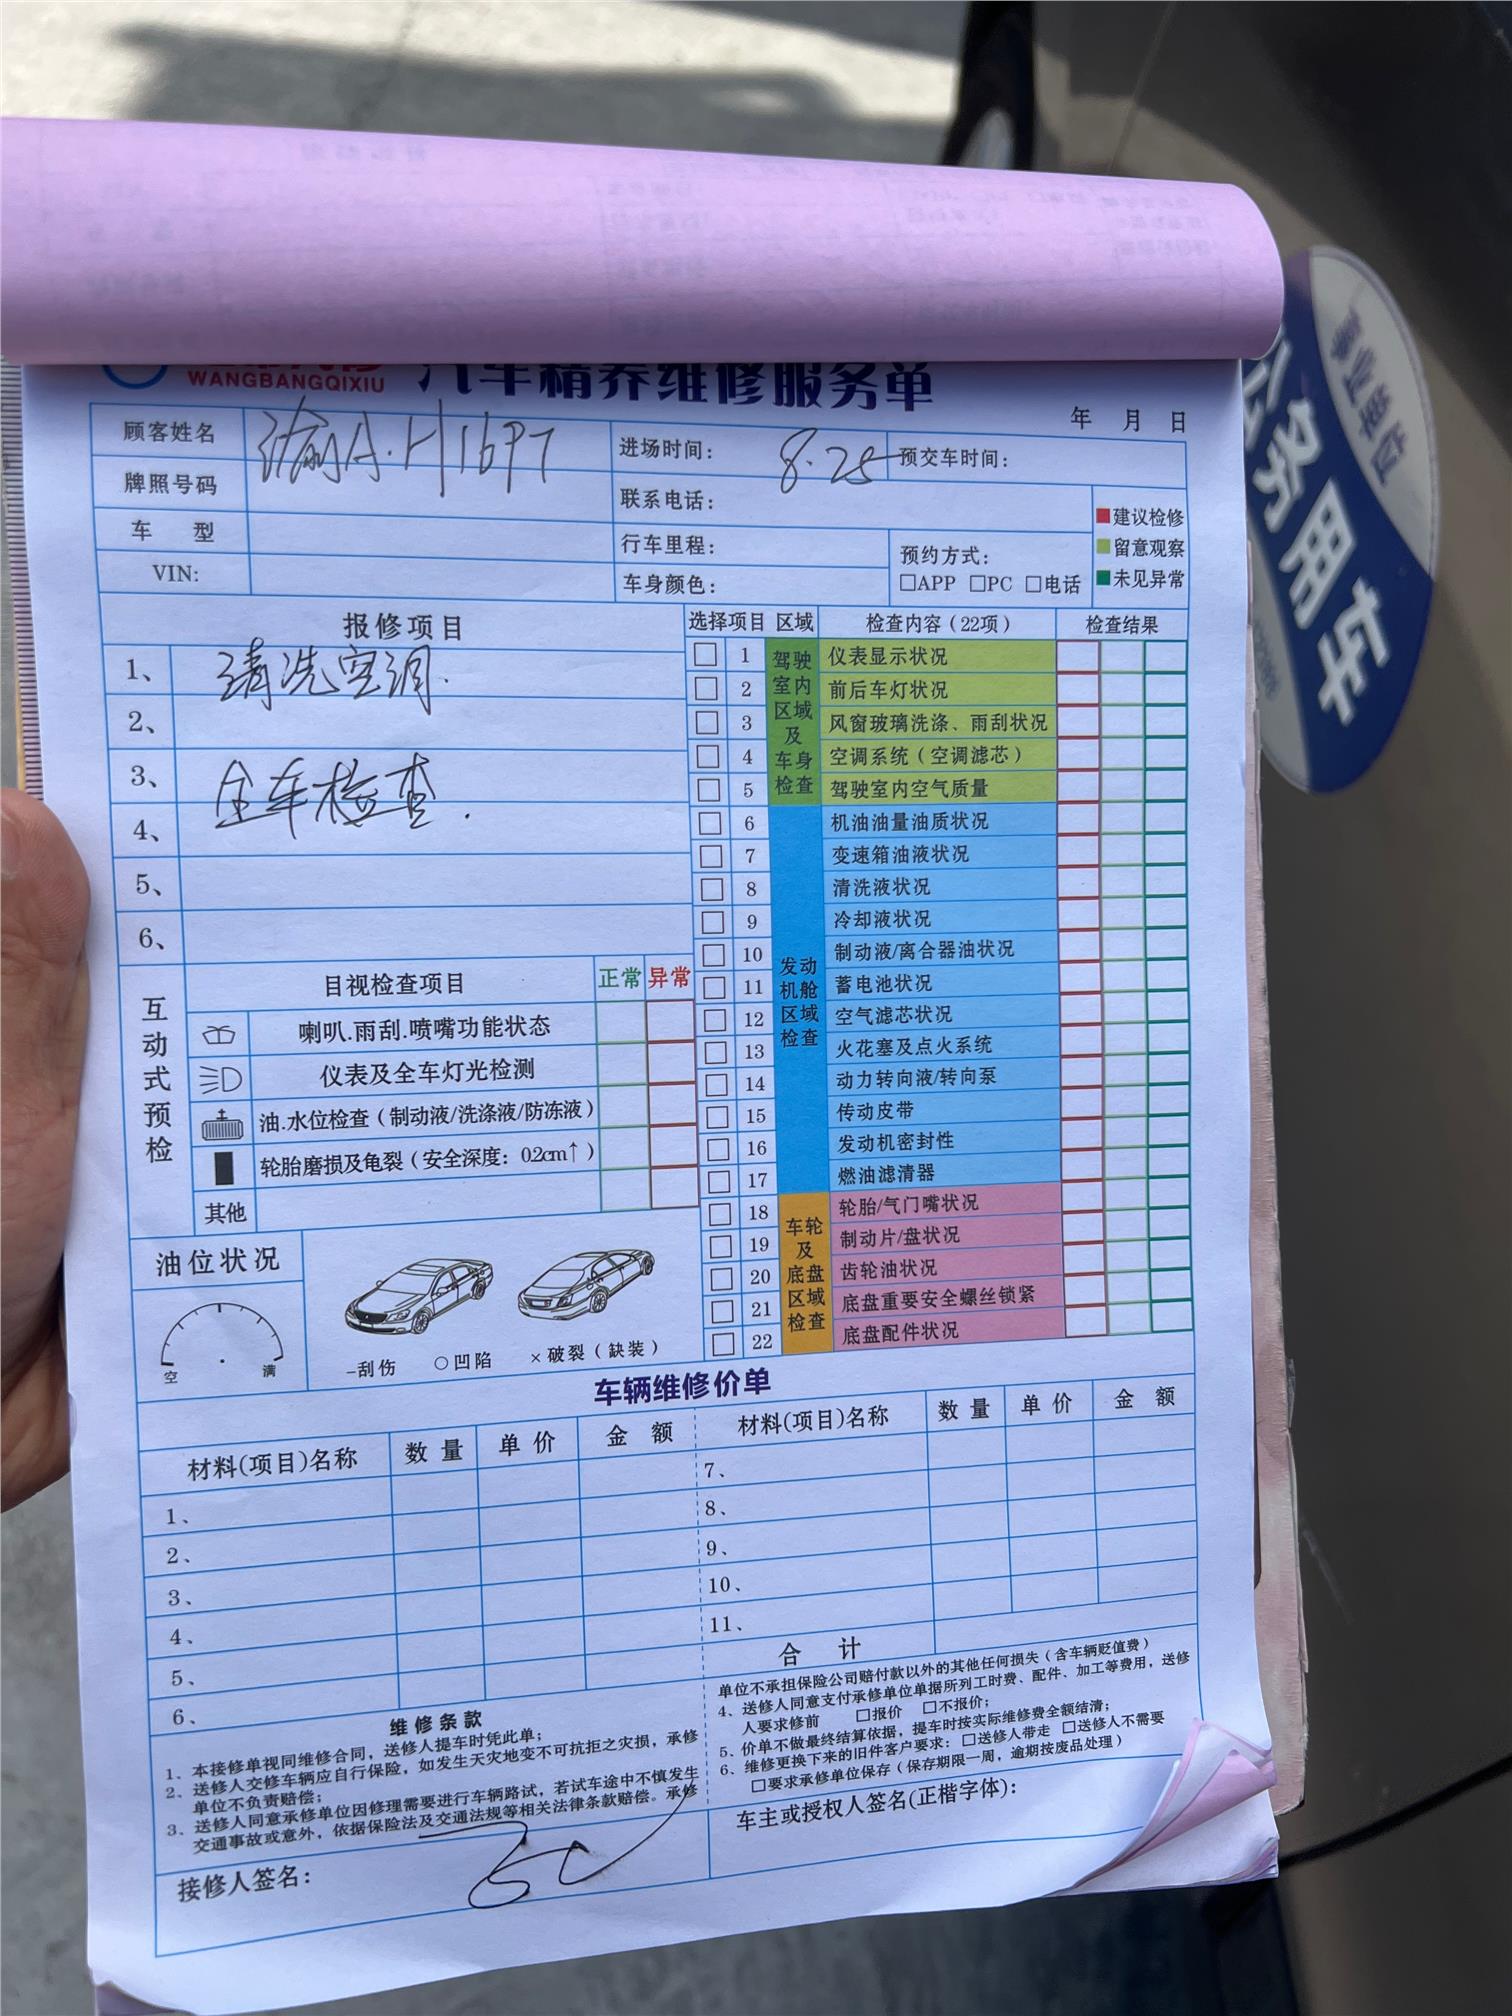 WANGBANGQIXIU 汽车精养维修服务单
年 月 日
顾客姓名
渝A·H1697
进场时间: 8.25
预交车时间:
牌照号码
联系电话:
车 型
行车里程:
预约方式:
□APP □PC □电话
VIN:
车身颜色:
建议检修
留意观察
未见异常
报修项目
1、 清洗空调.
2、
3、 全车检查.
4、
5、
6、
选择项目 区域 检查内容(22项) 检查结果
驾驶室内区域及车身检查
1 仪表显示状况
2 前后车灯状况
3 风窗玻璃洗涤、雨刮状况
4 空调系统(空调滤芯)
5 驾驶室内空气质量
发动机舱区域检查
6 机油油量油质状况
7 变速箱油液状况
8 清洗液状况
9 冷却液状况
10 制动液/离合器油状况
11 蓄电池状况
12 空气滤芯状况
13 火花塞及点火系统
14 动力转向液/转向泵
15 传动皮带
16 发动机密封性
17 燃油滤清器
车轮及底盘区域检查
18 轮胎/气门嘴状况
19 制动片/盘状况
20 齿轮油状况
21 底盘重要安全螺丝锁紧
22 底盘配件状况
互动式预检
目视检查项目 正常 异常
喇叭.雨刮.喷嘴功能状态
仪表及全车灯光检测
油.水位检查(制动液/洗涤液/防冻液)
轮胎磨损及龟裂(安全深度:0.2cm↑)
其他
油位状况
空 满
-刮伤 ○凹陷 ×破裂(缺装)
车辆维修价单
材料(项目)名称 数量 单价 金额
1、
2、
3、
4、
5、
6、
材料(项目)名称 数量 单价 金额
7、
8、
9、
10、
11、
合 计
维修条款
1、本接修单视同维修合同,送修人提车时凭此单;
2、送修人交修车辆应自行保险,如发生天灾地变不可抗拒之灾损,承修
单位不负责赔偿;
3、送修人同意承修单位因修理需要进行车辆路试,若试车途中不慎发生
交通事故或意外,依据保险法及交通法规等相关法律条款赔偿。承修
单位不承担保险公司赔付款以外的其他任何损失(含车辆贬值费)
4、送修人同意支付承修单位单据所列工时费、配件、加工等费用,送修
人要求修前 □报价 □不报价;
5、价单不做最终结算依据,提车时按实际维修费全额结清;
6、维修更换下来的旧件客户要求:□送修人带走 □送修人不需要
□要求承修单位保存(保存期限一周,逾期按废品处理)
接修人签名:
车主或授权人签名(正楷字体):
公务用车
事业单位